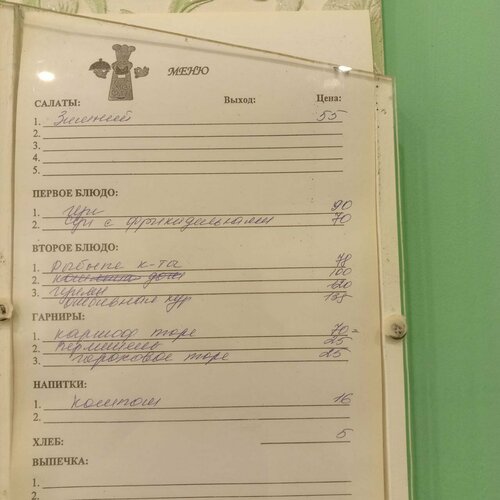 МЕНЮ
САЛАТЫ: Выход: Цена:
1. Зимний 55
2.
3.
4.
5.
ПЕРВОЕ БЛЮДО:
1. Щи 90
2. Суп с фрикадельками 70
ВТОРОЕ БЛЮДО:
1. Рыбные к-та 78
2. 100
3.
кур
ГАРНИРЫ:
1. картоф пюре 70=
2. Вермишель 25
3. гороховое пюре 25
НАПИТКИ:
1. компот 16
2.
ХЛЕБ: 5
ВЫПЕЧКА:
1.
2.